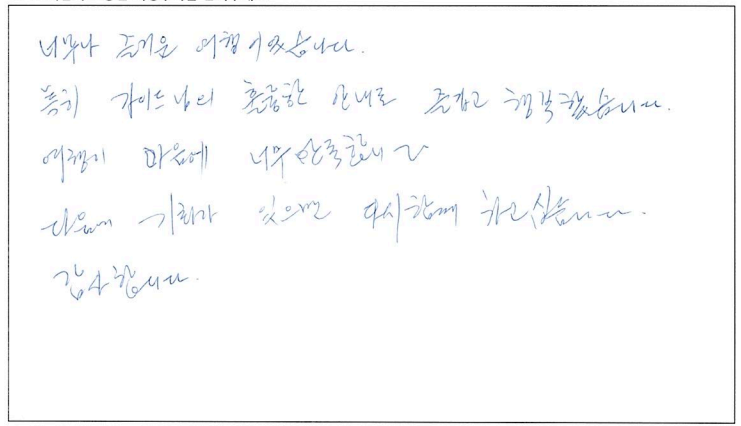 너무나 즐거운 여행이었습니다.
특히 가이드님의 훌륭한 안내로 즐겁고 행복했습니다.
여행이 마음에 너무 만족합니다
다음에 기회가 있으면 다시 함께 하고 싶습니다.
감사합니다.